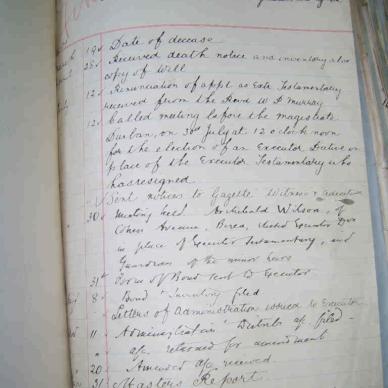 19 Date of decease
25 Received death notice and inventory also
copy of Will
12 Renunciation of appt as Exte Testamentary
received from the Revd W P Murray
12 Called meeting before the magistrate
Durban, on 30th July at 12 o'clock noon
for the election of an Executor Dative in
place of the Executor Testamentary who
has resigned
Sent notices to Gazette Witness &
30 Meeting held. Archibald Wilson, of
Avenue, Berea, elected Executor Dive
in place of Executor Testamentary, and
Guardian of the minor heirs
31st Form of Bond sent to Executor
8 Bond & Inventory filed
Letters of Administration issued to Executor
11 Administration & Distrib a/c filed
a/c returned for amendment
20 Amended a/c received
31 Masters Report